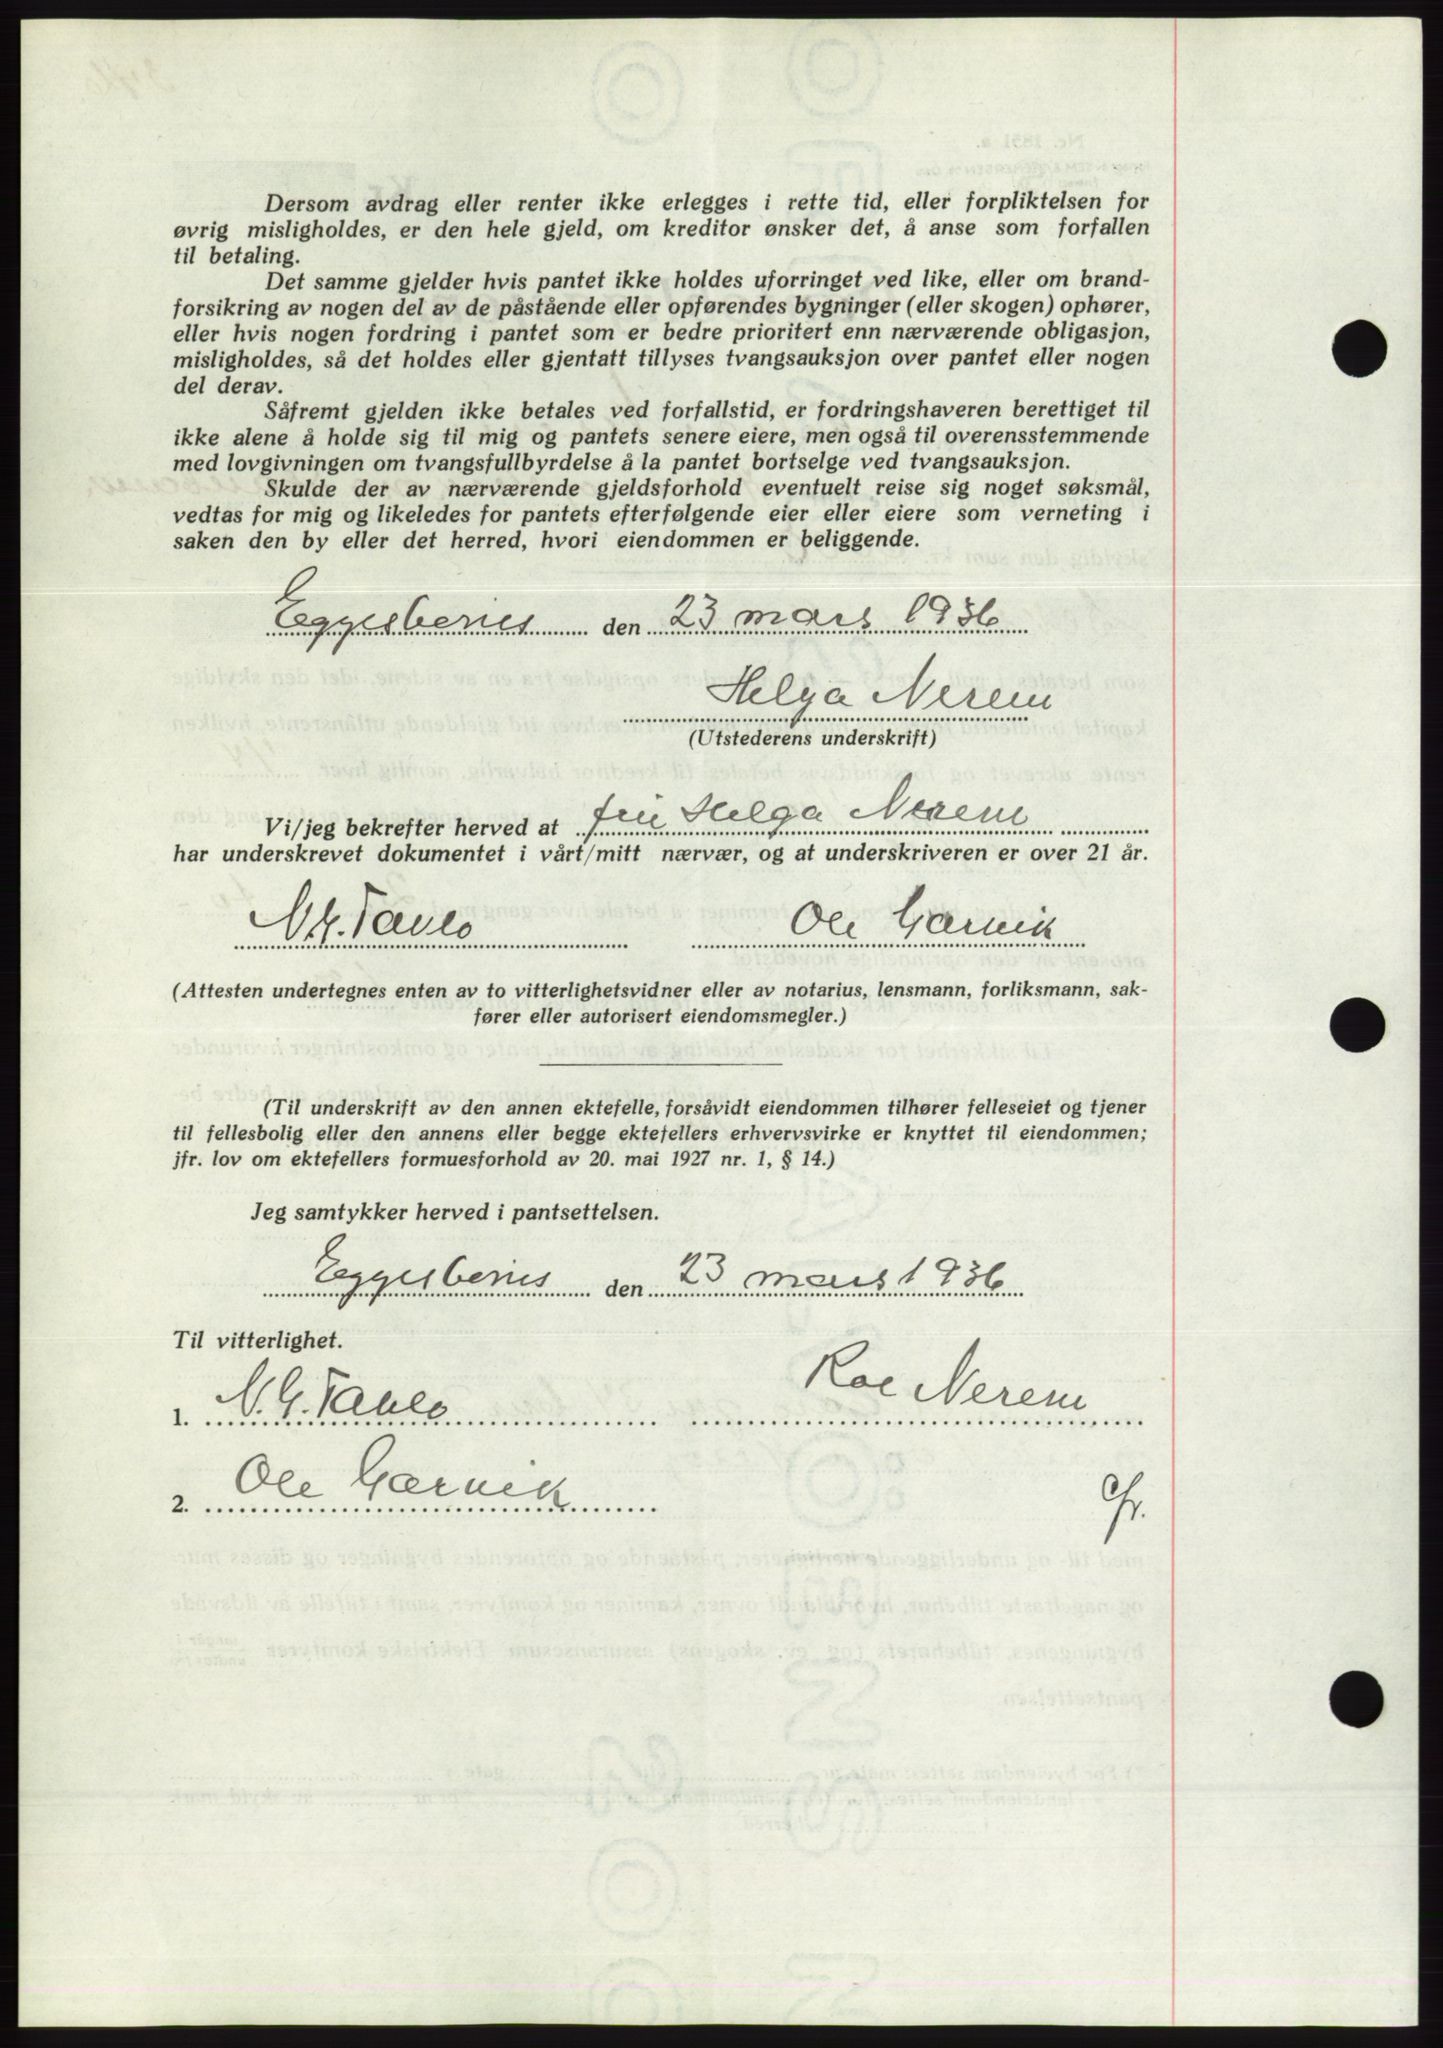 Dersom avdrag eller renter ikke erlegges i rette tid, eller forpliktelsen for
øvrig misligholdes, er den hele gjeld, om kreditor ønsker det, å anse som forfallen
til betaling.
Det samme gjelder hvis pantet ikke holdes uforringet ved like, eller om brand-
forsikring av nogen del av de påstående eller opførendes bygninger (eller skogen) ophører,
eller hvis nogen fordring i pantet som er bedre prioritert enn nærværende obligasjon,
misligholdes, så det holdes eller gjentatt tillyses tvangsauksjon over pantet eller nogen
del derav.
Såfremt gjelden ikke betales ved forfallstid, er fordringshaveren berettiget til
ikke alene å holde sig til mig og pantets senere eiere, men også til overensstemmende
med lovgivningen om tvangsfullbyrdelse å la pantet bortselge ved tvangsauksjon.
Skulde der av nærværende gjeldsforhold eventuelt reise sig noget søksmål,
vedtas for mig og likeledes for pantets efterfølgende eier eller eiere som verneting i
saken den by eller det herred, hvori eiendommen er beliggende.
Eggesbønes den 23 mars 1936
Helga Nerem
(Utstederens underskrift)
Vi/jeg bekrefter herved at fru Helga Nerem
har underskrevet dokumentet i vårt/mitt nærvær, og at underskriveren er over 21 år.
N. G. Tavlo Ole Garvik
(Attesten undertegnes enten av to vitterlighetsvidner eller av notarius, lensmann, forliksmann, sak-
fører eller autorisert eiendomsmegler.)
(Til underskrift av den annen ektefelle, forsåvidt eiendommen tilhører felleseiet og tjener
til fellesbolig eller den annens eller begge ektefellers erhvervsvirke er knyttet til eiendommen;
jfr. lov om ektefellers formuesforhold av 20. mai 1927 nr. 1, § 14.)
Jeg samtykker herved i pantsettelsen.
Eggesbønes den 23 mars 1936
Til vitterlighet.
1. N. G. Tavlo Roe Nerem
2. Ole Garvik